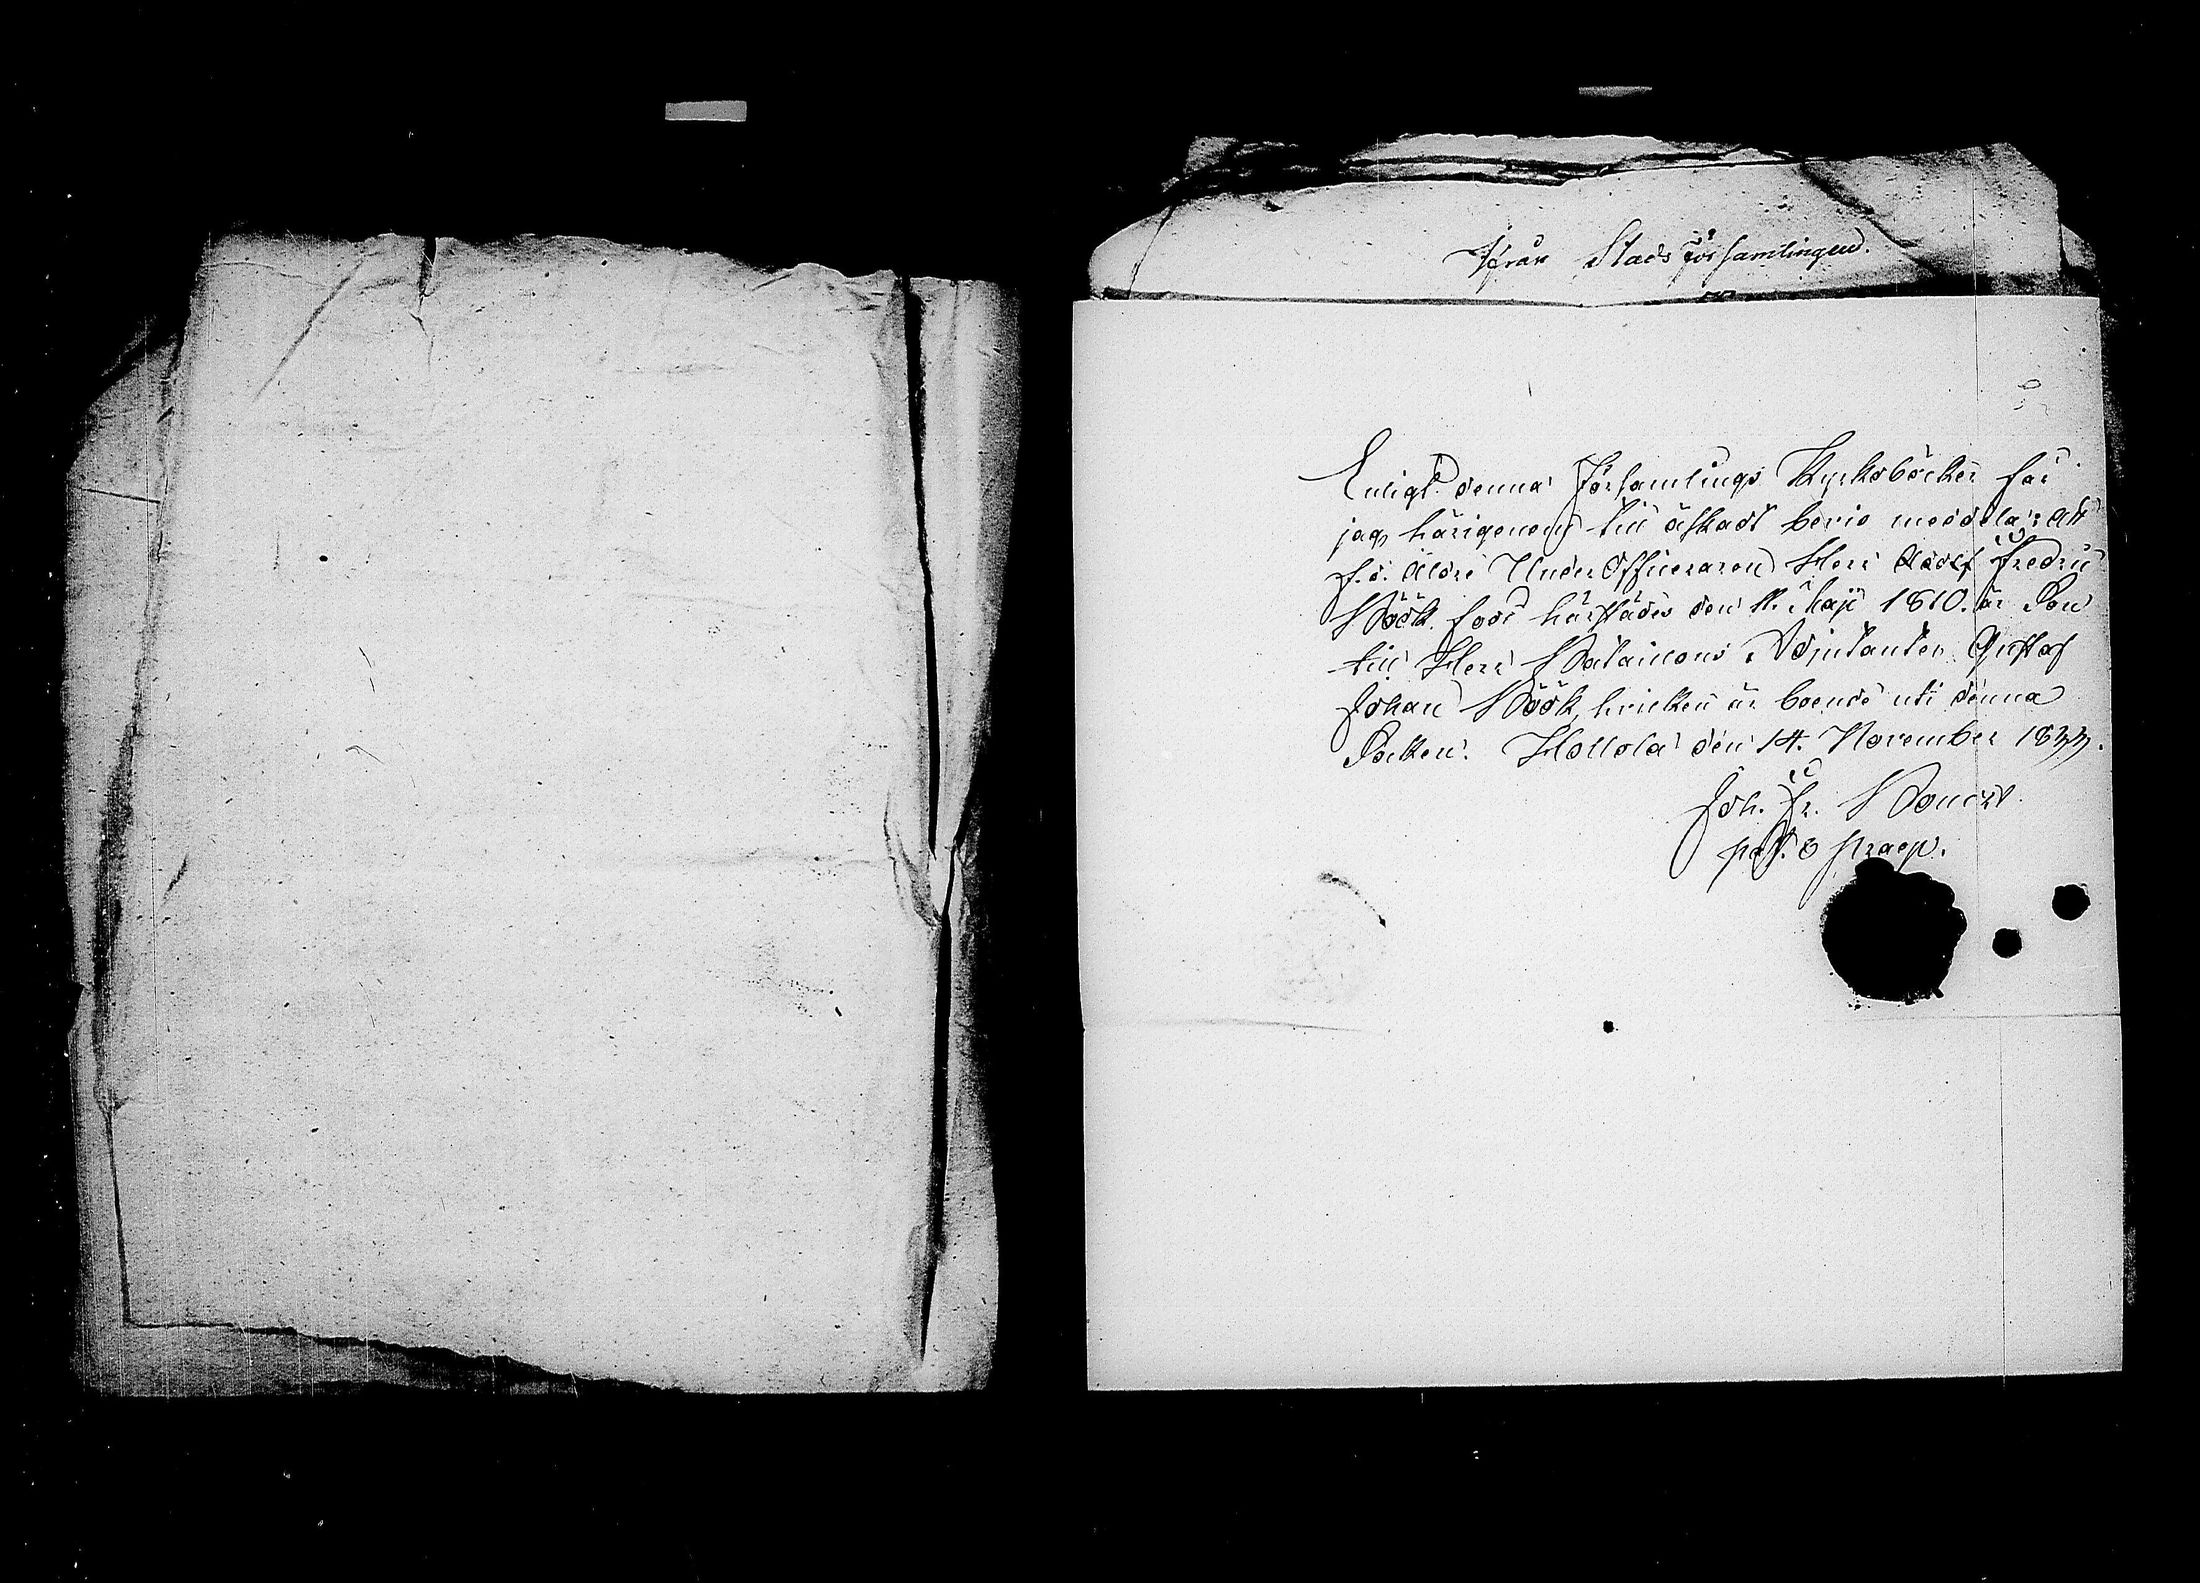 Ifrån Stads församlingen.
Enligt denna Församlings Kyrkoböcker får
jag härigenom till äskadt bevis meddela: att
f. d. äldre UnderOfficeraren Herr Adolf Fredric
Höök född härstädes den 11. Maji 1810. är Son
till Herr Bataillons Adjutanten Gustaf
Johan Höök, hvilken är boende uti denna
Socken. Hollola den 14. November 1833.
Joh. Fr.
past. & praep.